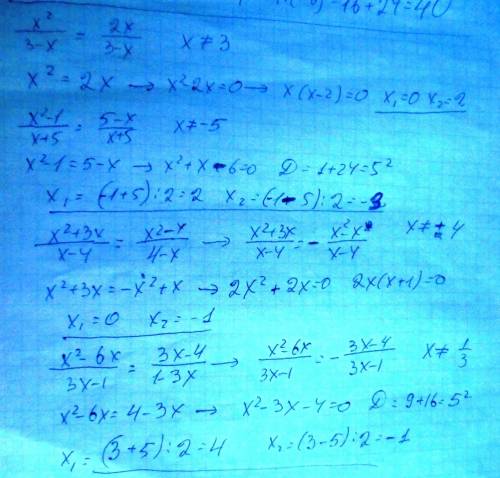 -16+24=40
x²/(3-x) = 2x/(3-x)   x≠3
x²=2x → x²2x=0 → x(x-2)=0   x₁=0 x₂=2
(x²-1)/(x+5) = (5-x)/(x+5)   x≠-5
x²-1=5-x → x²+x-6=0   D=1+24=5²
x₁=(-1+5):2=2   x₂=(-1-5):2=-3
(x²+3x)/(x-4) = (x²-x)/(4-x) → (x²+3x)/(x-4) = -(x²-x)/(x-4)   x≠±4
x²+3x=-x²+x → 2x²+2x=0   2x(x+1)=0
x₁=0   x₂=-1
(x²-6x)/(3x-1) = (3x-4)/(1-3x) → (x²-6x)/(3x-1) = -(3x-4)/(3x-1)   x≠1/3
x²-6x=4-3x → x²-3x-4=0   D=9+16=5²
x₁=(3+5):2=4   x₂=(3-5):2=-1